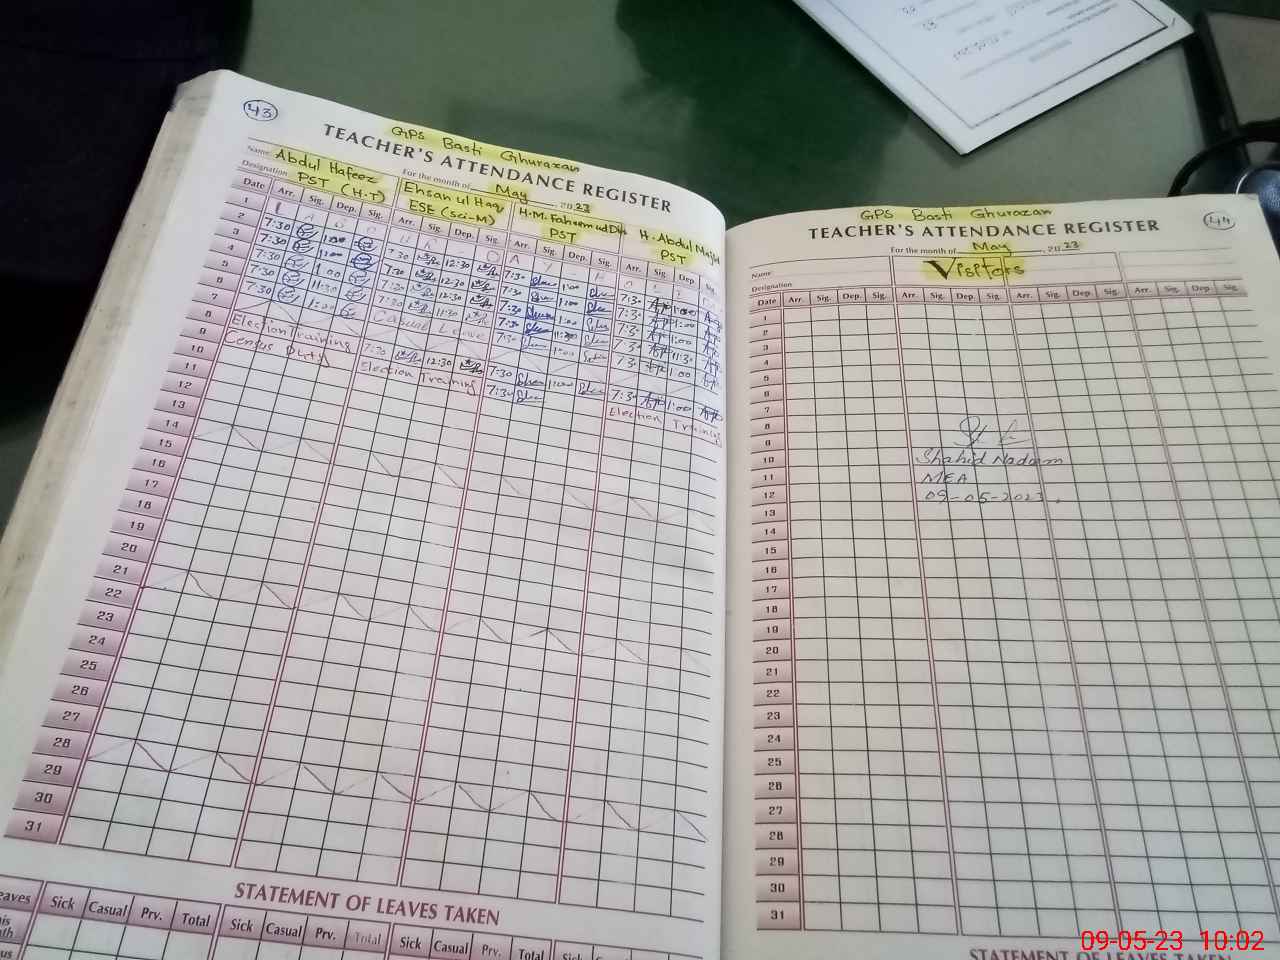 43
GPS Basti Ghurazan
TEACHER'S ATTENDANCE REGISTER
For the month of May, 2023
Name Abdul Hafeez
Designation PST (H.T)
Ehsan ul Haq
ESE (Sci-M)
H.M. Faheem ud Din
PST
H. Abdul Majid
PST
Date Arr. Sig. Dep. Sig. Arr. Sig. Dep. Sig. Arr. Sig. Dep. Sig. Arr. Sig. Dep. Sig.
1
2 7:30 1:00 7:30 12:30 7:30 1:00 7:30 1:00
3 7:30 1:00 7:30 12:30 7:30 1:00 7:30 1:00
4 7:30 1:00 7:30 12:30 7:30 1:00 7:30 1:00
5 7:30 11:30 7:30 11:30 7:30 11:30 7:30 11:30
6 7:30 1:00 Casual Leave 7:30 1:00 7:30 1:00
7
8 Election Training 7:30 12:30 7:30 1:00 7:30 1:00
9 Census Duty Election Training 7:30 Election Training
10
11
12
13
14
15
16
17
18
19
20
21
22
23
24
25
26
27
28
29
30
31
STATEMENT OF LEAVES TAKEN
Sick Casual Prv. Total Sick Casual Prv. Total Sick Casual Prv. Total Sick
44
GPS Basti Ghurazan
TEACHER'S ATTENDANCE REGISTER
For the month of May, 2023
Name
Designation
Visitors
Date Arr. Sig. Dep. Sig. Arr. Sig. Dep. Sig. Arr. Sig. Dep. Sig. Arr. Sig. Dep. Sig.
1
2
3
4
5
6
7
8
9
10 Shahid Nadeem
11 MEA
12 09-05-2023.
13
14
15
16
17
18
19
20
21
22
23
24
25
26
27
28
29
30
31
STATEMENT OF LEAVES TAKEN
09-05-23 10:02